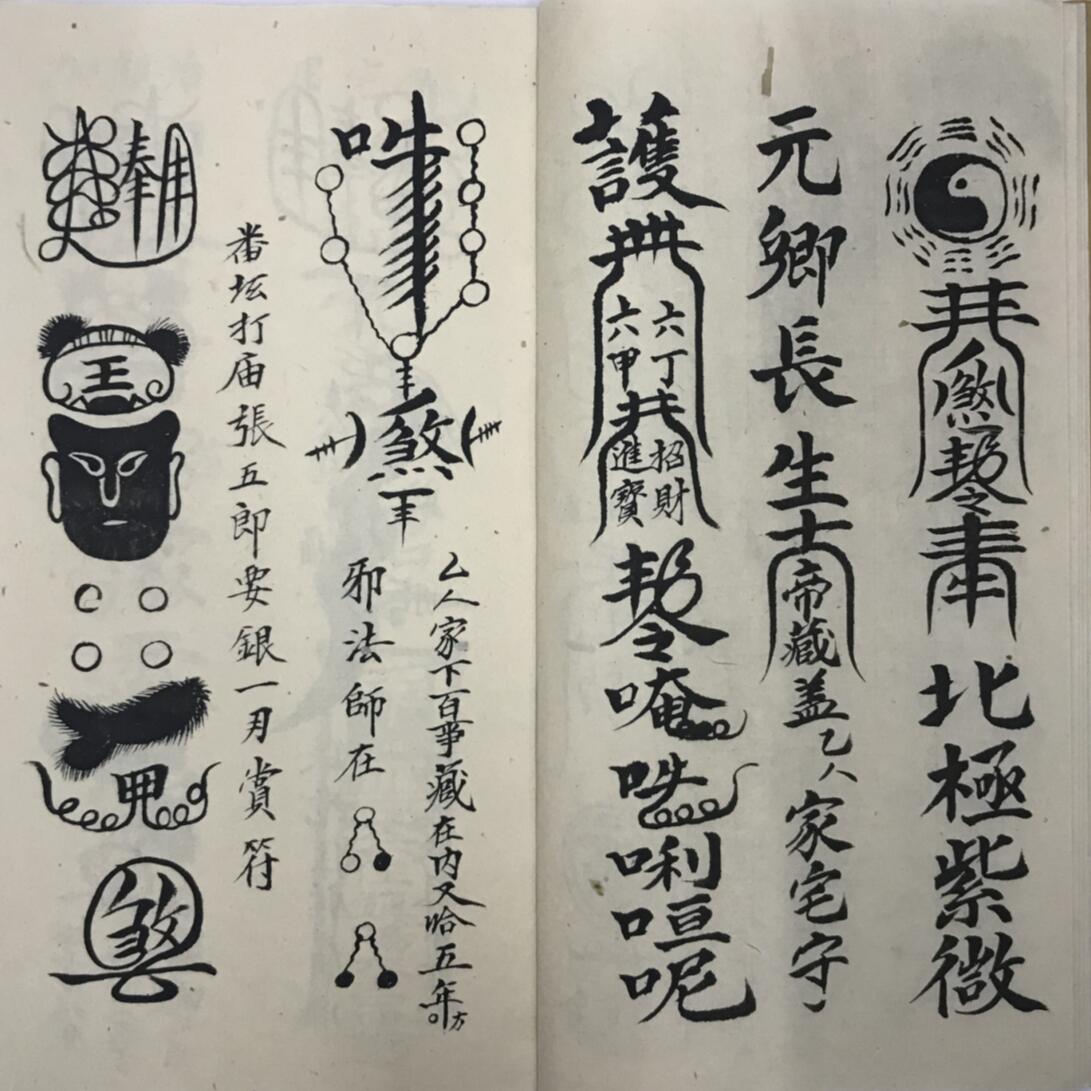 煞
奉北極紫微
元卿長生
帝藏
盖乙人家宅守
護
六丁
六甲
招財
進寶
唵
唎吅呢
煞
乙人家下百事藏在内又哈五年方
邪法師在
番坛打庙張五郎要銀一刃賞符
奉
王
煞